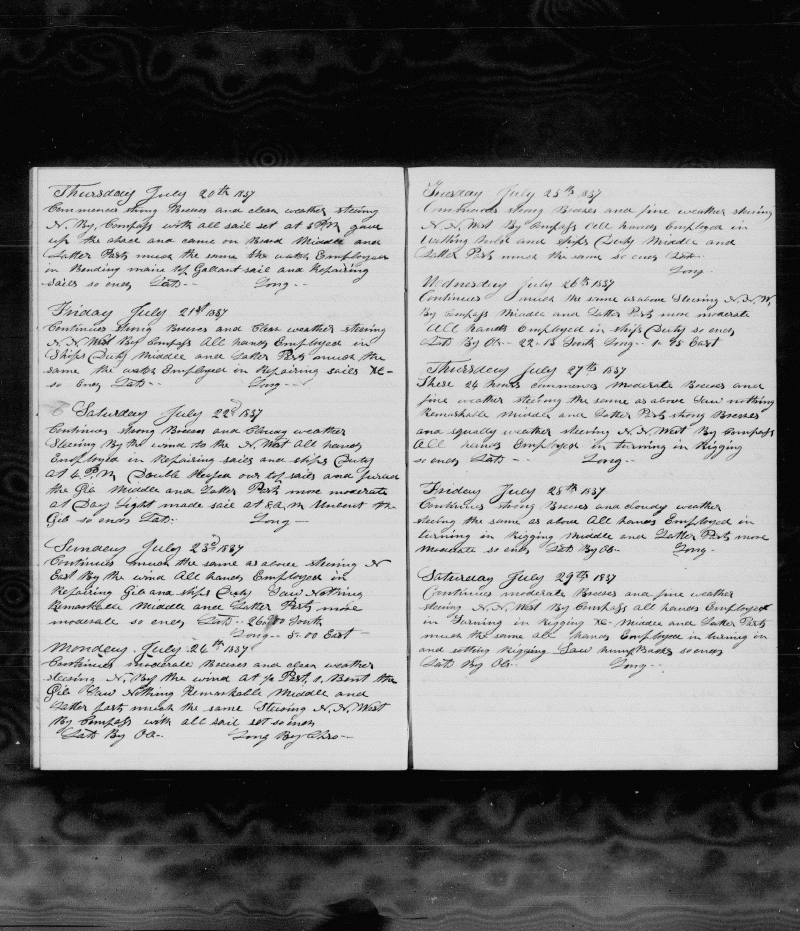 Thursday July 20th 1857
Commences strong Breeses and clear weather steering
N. By. Compass with all sail set at 5 P.M gave
up the chace and came on Board Middle and
Latter Parts much the same the watch Employed
in Bending maine top Gallant sail and Repairing
sails so ends Latd-- Long--
Friday July 21st 1857
Continues strong Breeses and Clear weather steering
N. N. West By Compass All hands Employed in
Ships Duty Middle and Latter Parts much the
same the watch Employed in Repairing sails &c-
so ends Latd-- Long--
Saturday July 22d 1857
Continues strong Breeses and Cloudy weather
Steering By the wind to the N. West All hands
Employed in Repairing sails and ships Duty
at 4 P.M Double Reefed our top sails and furled
the Gib Middle and Latter Parts more moderate
at Day Light made sail at 8 A.M Unbent the
Gib so ends Latd: Long--
Sunday July 23d 1857
Continues much the same as above steering N
East By the wind All hands Employed in
Repairing Gib and ships Duty Saw Nothing
Remarkable Middle and Latter Parts more
moderate so ends Latd-- 26 South
Long-- 5-00 East-
Monday. July 24th 1857
Continues moderate Breeses and clear weather
steering N. By the wind at Bent the
Gib Saw Nothing Remarkable Middle and
Latter parts much the same Steering N. N. West
By Compass with all sail set so ends
Latd By Ob-- Long By Chro--
Tuesday July 25th 1857
Continues strong Breeses and fine weather steering
N. N. West By Compass All hands Employed in
and ships Duty Middle and
Latter Parts much the same so ends Latd--
Long--
Wednesday July 26th 1857
Continues much the same as above Steering N. N. W.
By Compass Middle and Latter Parts more moderate
All hands Employed in ships Duty so ends
Latd By Ob-- 22-15 South Long-- 1-45 East
Thursday July 27th 1857
These 24 hours commences Moderate Breeses and
fine weather steering the same as above Saw nothing
Remarkable Middle and Latter Parts strong Breeses
and squally weather steering N. N. West By Compass
All hands Employed in turning in Rigging
so ends Latd-- Long--
Friday July 28th 1857
Continues strong Breeses and cloudy weather
steering the same as above All hands Employed in
turning in Rigging Middle and Latter Parts more
Moderate so ends Latd By Ob-- Long-
Saturday July 29th 1857
Continues moderate Breeses and fine weather
steering N. N. West By Compass All hands Employed
in Turning in Rigging &c- Middle and Latter Parts
much the same all hands Employed in turning in
and setting Rigging Saw hump Backs so ends
Latd By Ob-- Long--